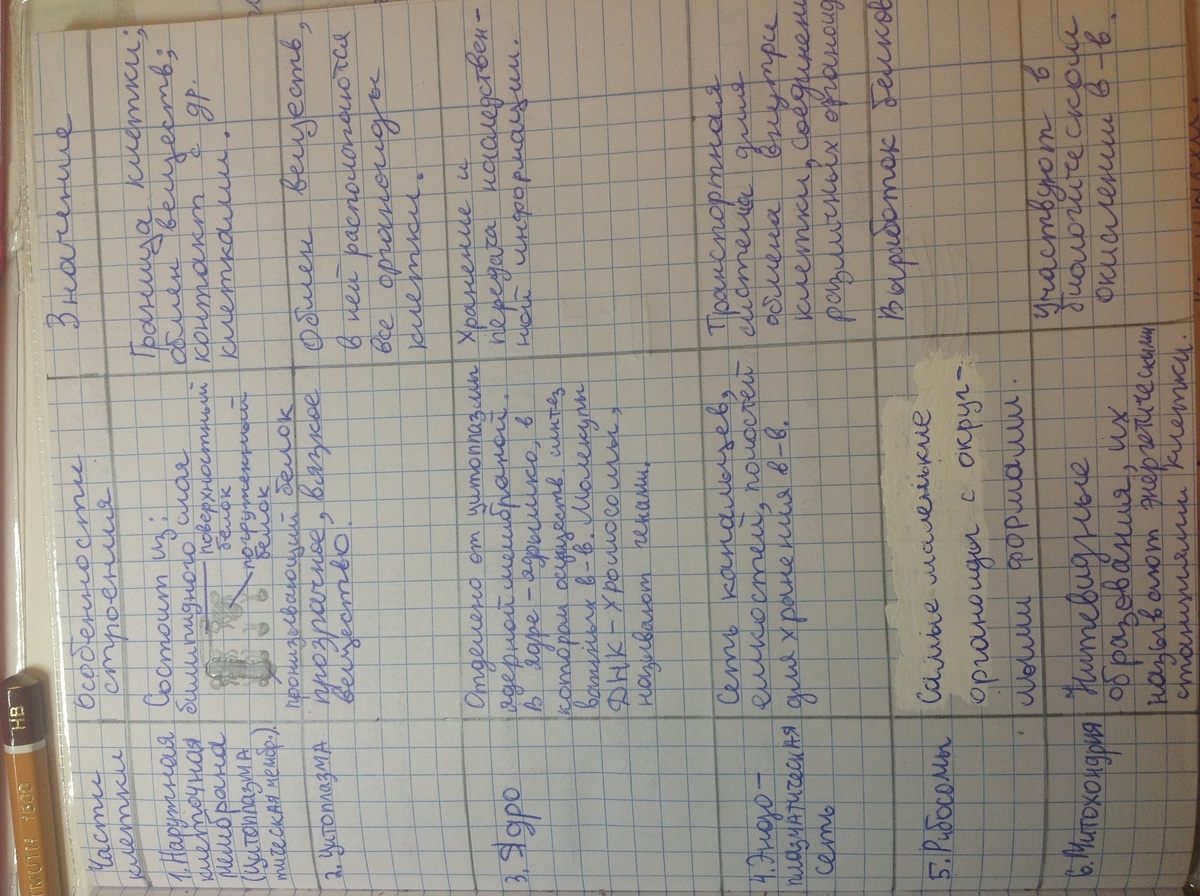 Части
клетки
Особенности
строения
Значение
1. Наружная
клеточная
мембрана
(Цитоплазма
тическая мембр.)
Состоит из:
билипидного слоя
поверхностный
белок
погруженный
белок
пронизывающий белок
Граница клетки;
обмен веществ;
контакт с др.
клетками.
2. Цитоплазма
прозрачное, вязкое
вещество.
Обмен веществ,
в ней располагаются
все органоиды
клетки.
3. Ядро
Отделено от цитоплазмы
ядерной мембраной.
В ядре – ядрышко, в
котором осуществ. синтез
важных в-в. Молекулы
ДНК – хромосомы,
называют генами.
Хранение и
передача наследствен-
ной информации.
4. Эндо-
плазматическая
сеть
Сеть канальцев,
емкостей, полостей
для хранения в-в.
Транспортная
система для
обмена внутри
клетки, соединени
различных органоид
5. Рибосомы
Самые маленькие
органоиды с округ-
лыми формами.
Выработок белков
6. Митохондрия
Нитевидные
образования, их
называют энергетическими
станциями клетки.
Участвуют в
биологическом
окислении в-в.
HB
1500